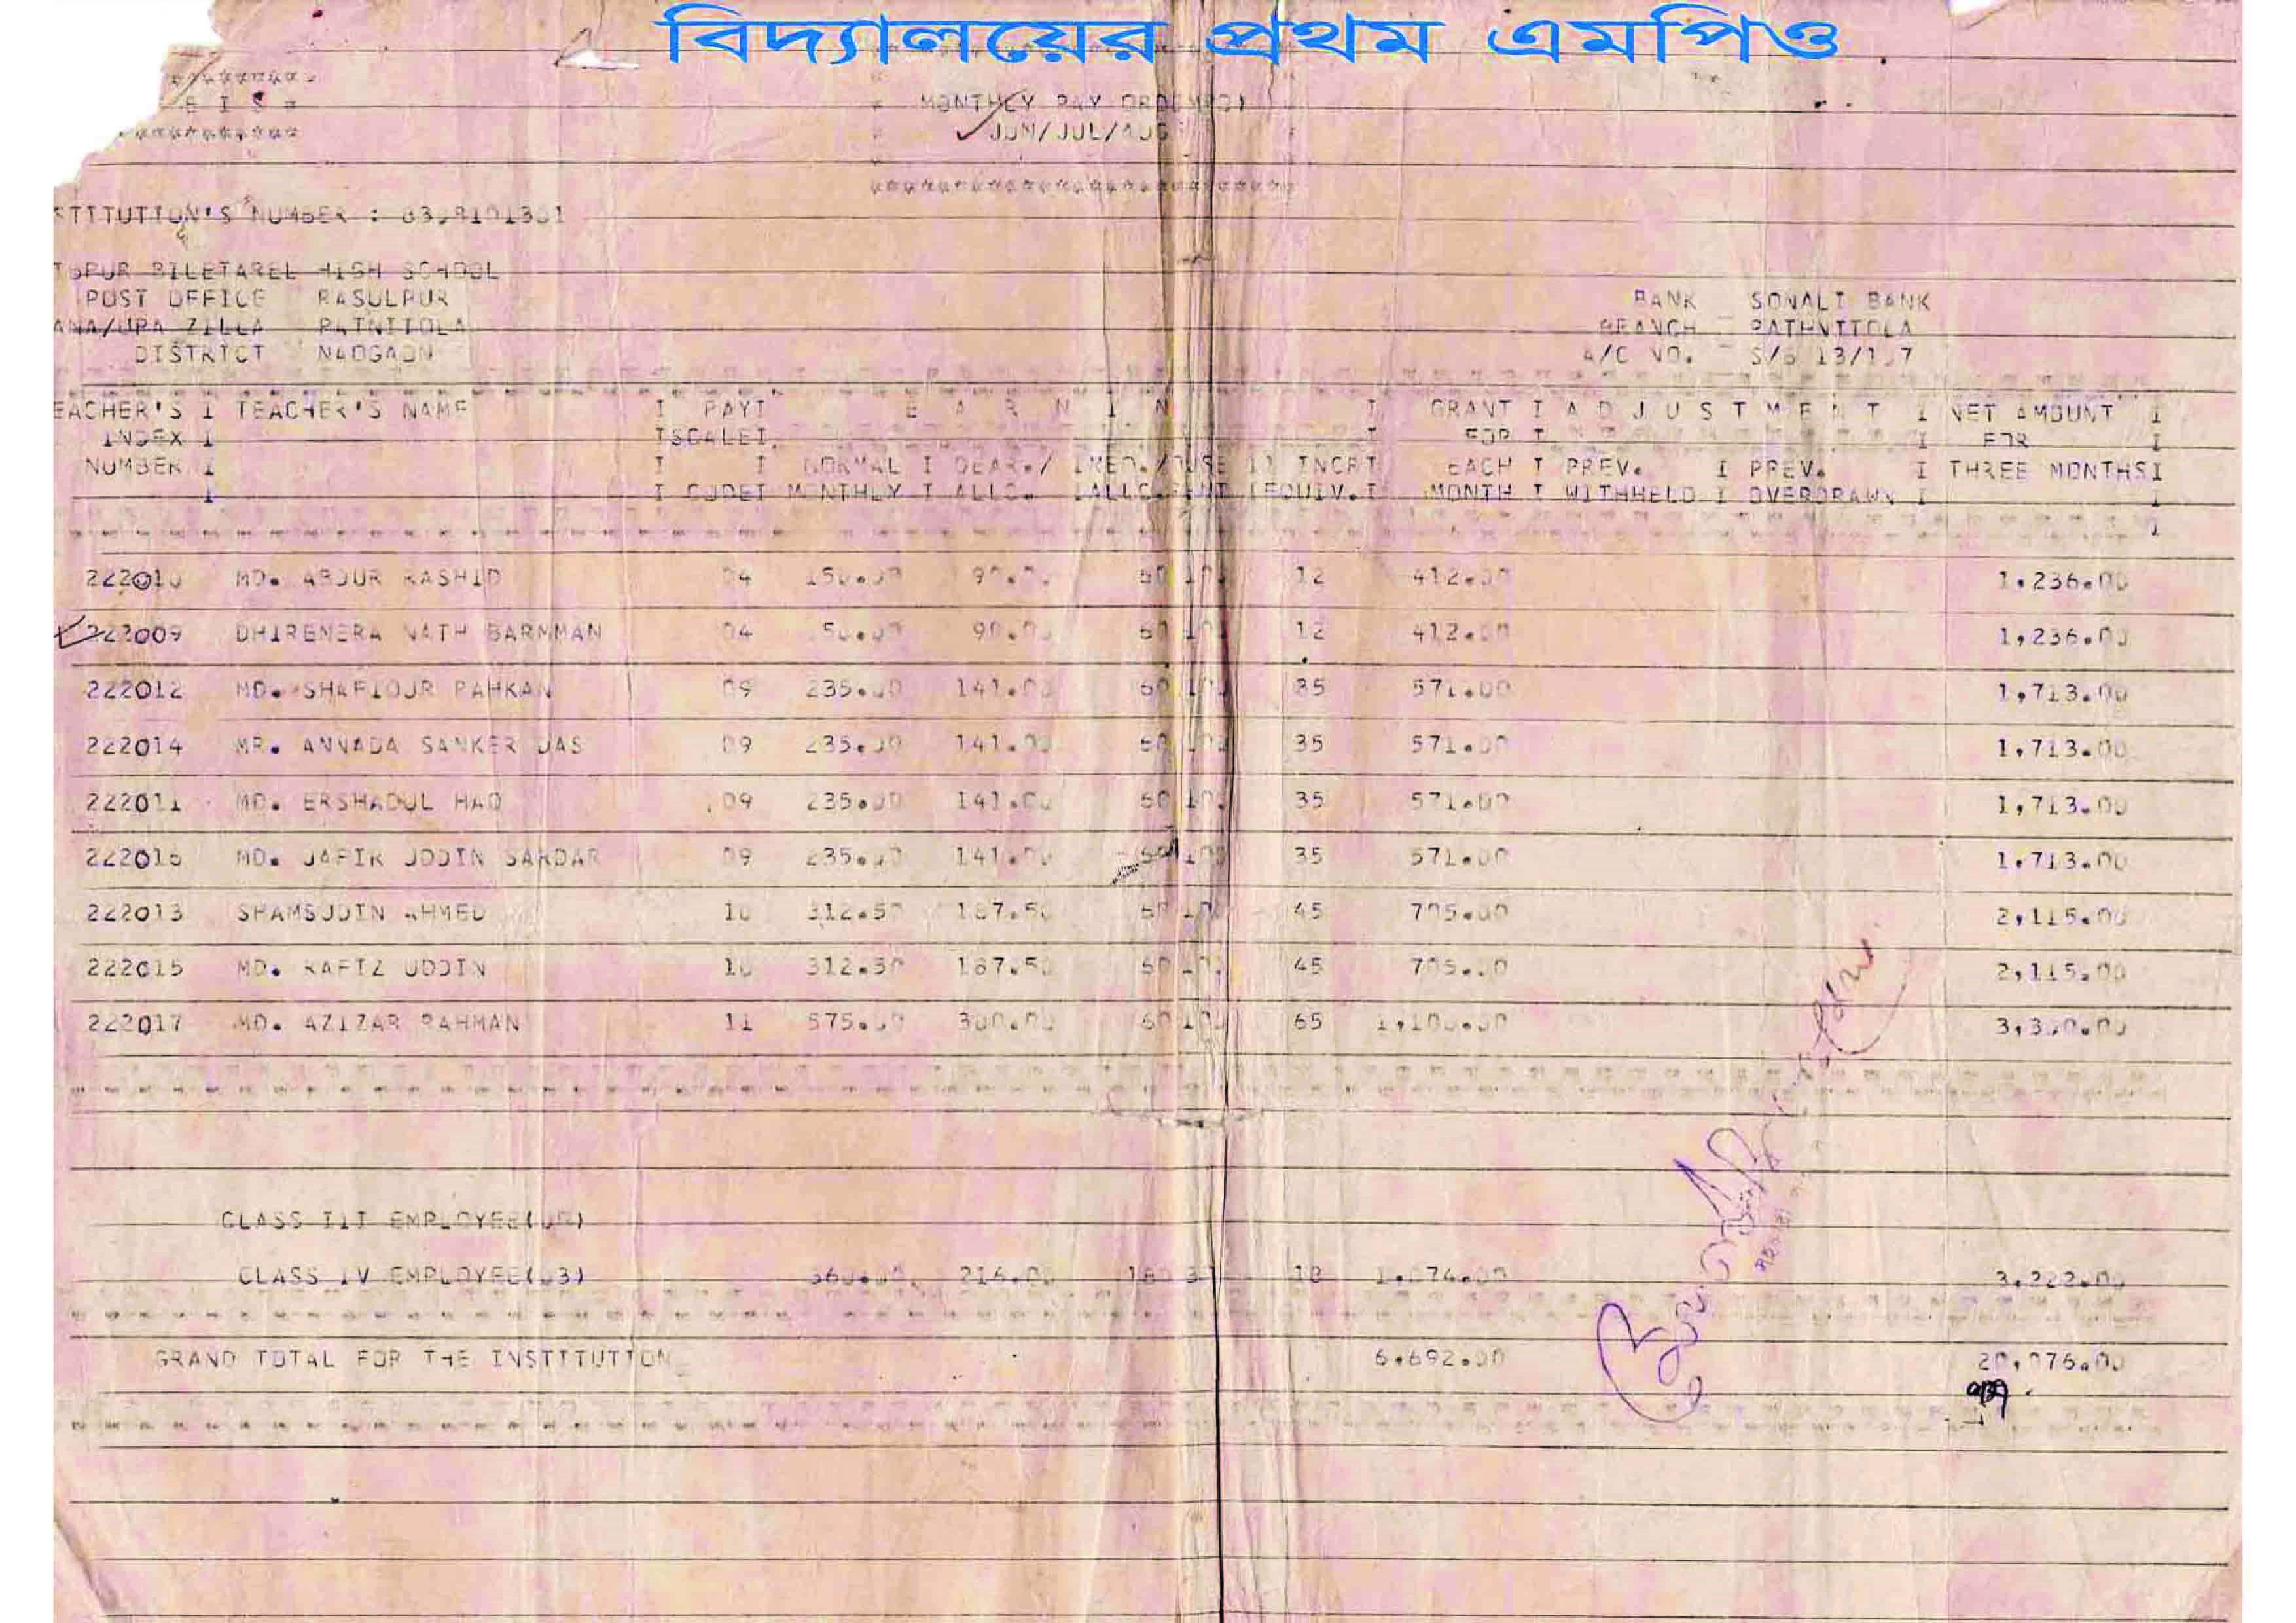 বিদ্যালয়ের প্রথম এমপিও
E I S
MONTHLY PAY
JUN/JUL/AUG
STITUTION'S NUMBER :
BILETAREL HIGH SCHOOL
POST OFFICE RASULPUR
ANA/UPA ZILLA PATNITOLA
DISTRICT NAOGAON
BANK SONALI BANK
BRANCH PATHNITOLA
A/C NO. S/B
EACHER'S I TEACHER'S NAME I PAYI E A R N I N I GRANT I A D J U S T M E N T I NET AMOUNT I
INDEX I ISCALEI I FOR I I FOR I
NUMBER I I I NORMAL I DEAR./ IMED./ INCRI EACH I PREV. I PREV. I THREE MONTHSI
I I CODEI MONTHLY I ALLC. IEQUIV.I MONTH I WITHHELD I OVERDRAWN I I
222010 MD. ABDUR RASHID 04 150.00 90.00 60 100 12 412.00 1,236.00
222009 DHIRENERA NATH BARMMAN 04 90.00 60 100 12 412.00 1,236.00
222012 MD. 09 235.00 141.00 60 100 35 571.00 1,713.00
222014 MR. ANNADA SANKER DAS 09 235.00 141.00 60 100 35 571.00 1,713.00
222011 MD. ERSHADUL HAQ 09 235.00 141.00 60 100 35 571.00 1,713.00
222016 MD. UDDIN SARDAR 09 235.00 141.00 60 100 35 571.00 1,713.00
222013 SHAMSUDIN AHMED 10 312.50 187.50 60 100 45 705.00 2,115.00
222015 MD. RAFIZ UDDIN 10 312.50 187.50 60 100 45 705.00 2,115.00
222017 MD. AZIZAR RAHMAN 11 575.00 300.00 60 100 65 1,100.00 3,300.00
CLASS III EMPLOYEE(00)
CLASS IV EMPLOYEE(03) 360.00 216.00 180 18 1,074.00 3,222.00
GRAND TOTAL FOR THE INSTITUTION 6,692.00 20,076.00